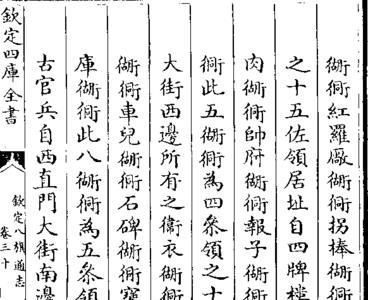 衚衕紅羅厰衚衕拐棒衚
之十五佐領居址自四牌樓
肉衚衕帥府衚衕報子衚
衕此五衚衕為四叅領之十
大街西邊所有之衛衣衚衕
衚衕車兒衚衕石碑衚衕寳
庫衚衕此八衚衕為五叅領
古官兵自西直門大街南邊
欽定四庫全書
欽定八旗通志
卷三十